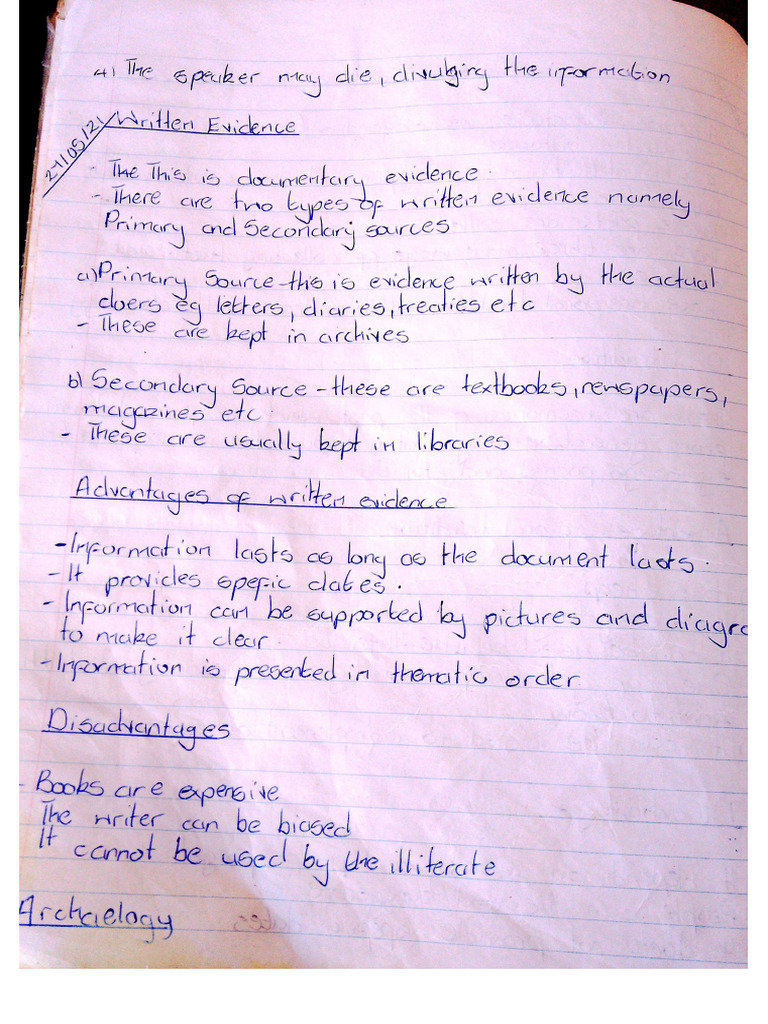 4) The speaker may die, divulging the information
24/05/21
Written Evidence
- The This is documentary evidence.
- There are two types of written evidence namely
Primary and Secondary sources
a) Primary Source - this is evidence written by the actual
doers eg letters, diaries, treaties etc
- These are kept in archives
b) Secondary Source - these are textbooks, newspapers,
magazines etc
- These are usually kept in libraries
Advantages of written evidence
- Information lasts as long as the document lasts.
- It provides spefic dates.
- Information can be supported by pictures and diagra
to make it clear.
- Information is presented in thematic order
Disadvantages
- Books are expensive
The writer can be biased
It cannot be used by the illiterate
Archaelogy